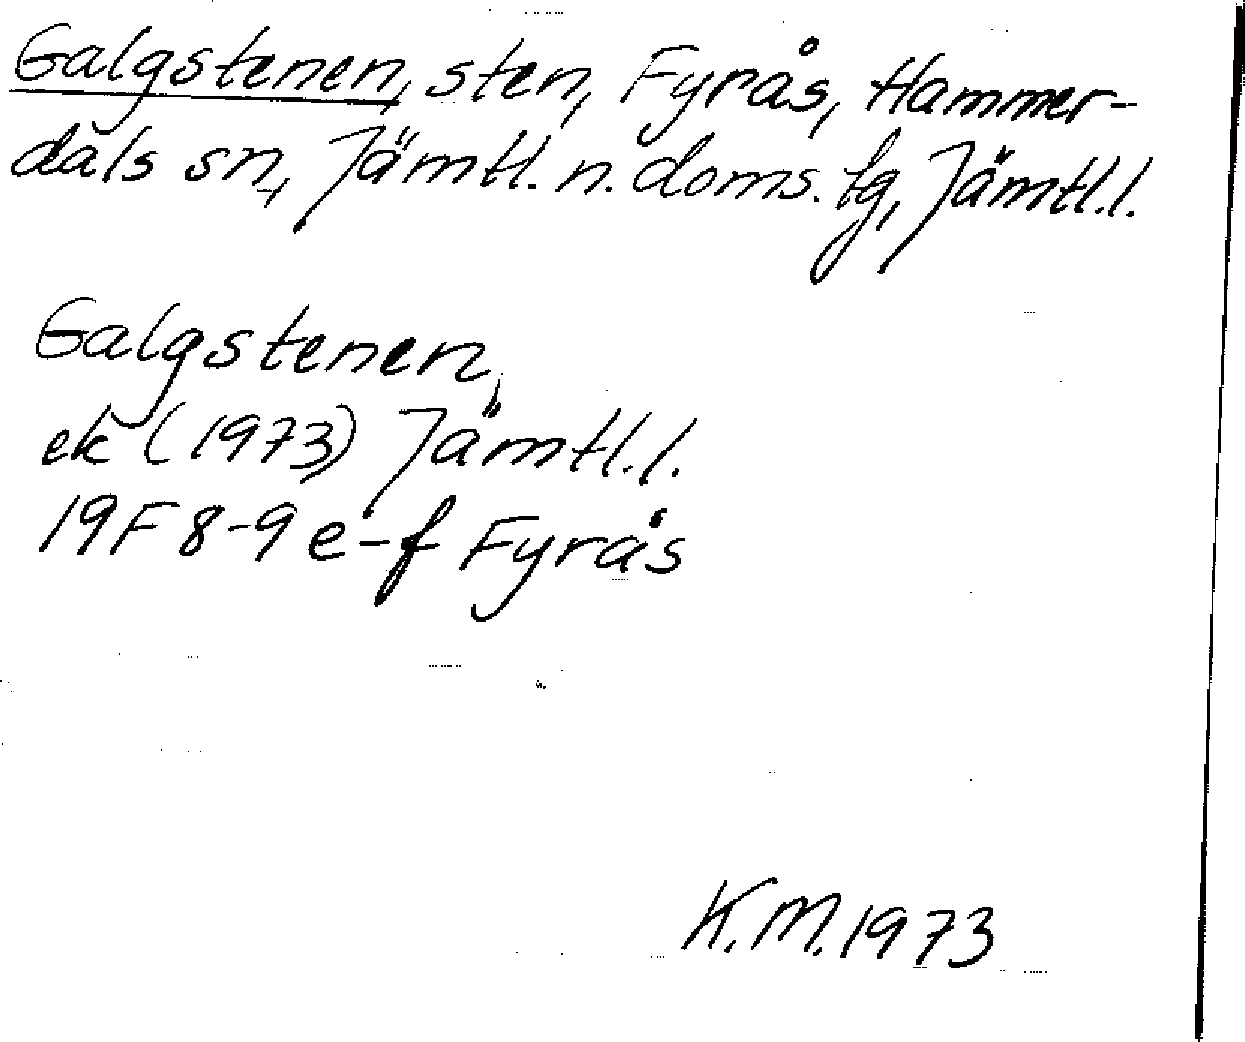 Galgstenen, sten, Fyrås, Hammer-
dals sn, Jämtl. n. doms. tg, Jämtl.l.
Galgstenen,
ek (1973) Jämtl.l.
19F 8-9 e-f Fyrås
K.M. 1973